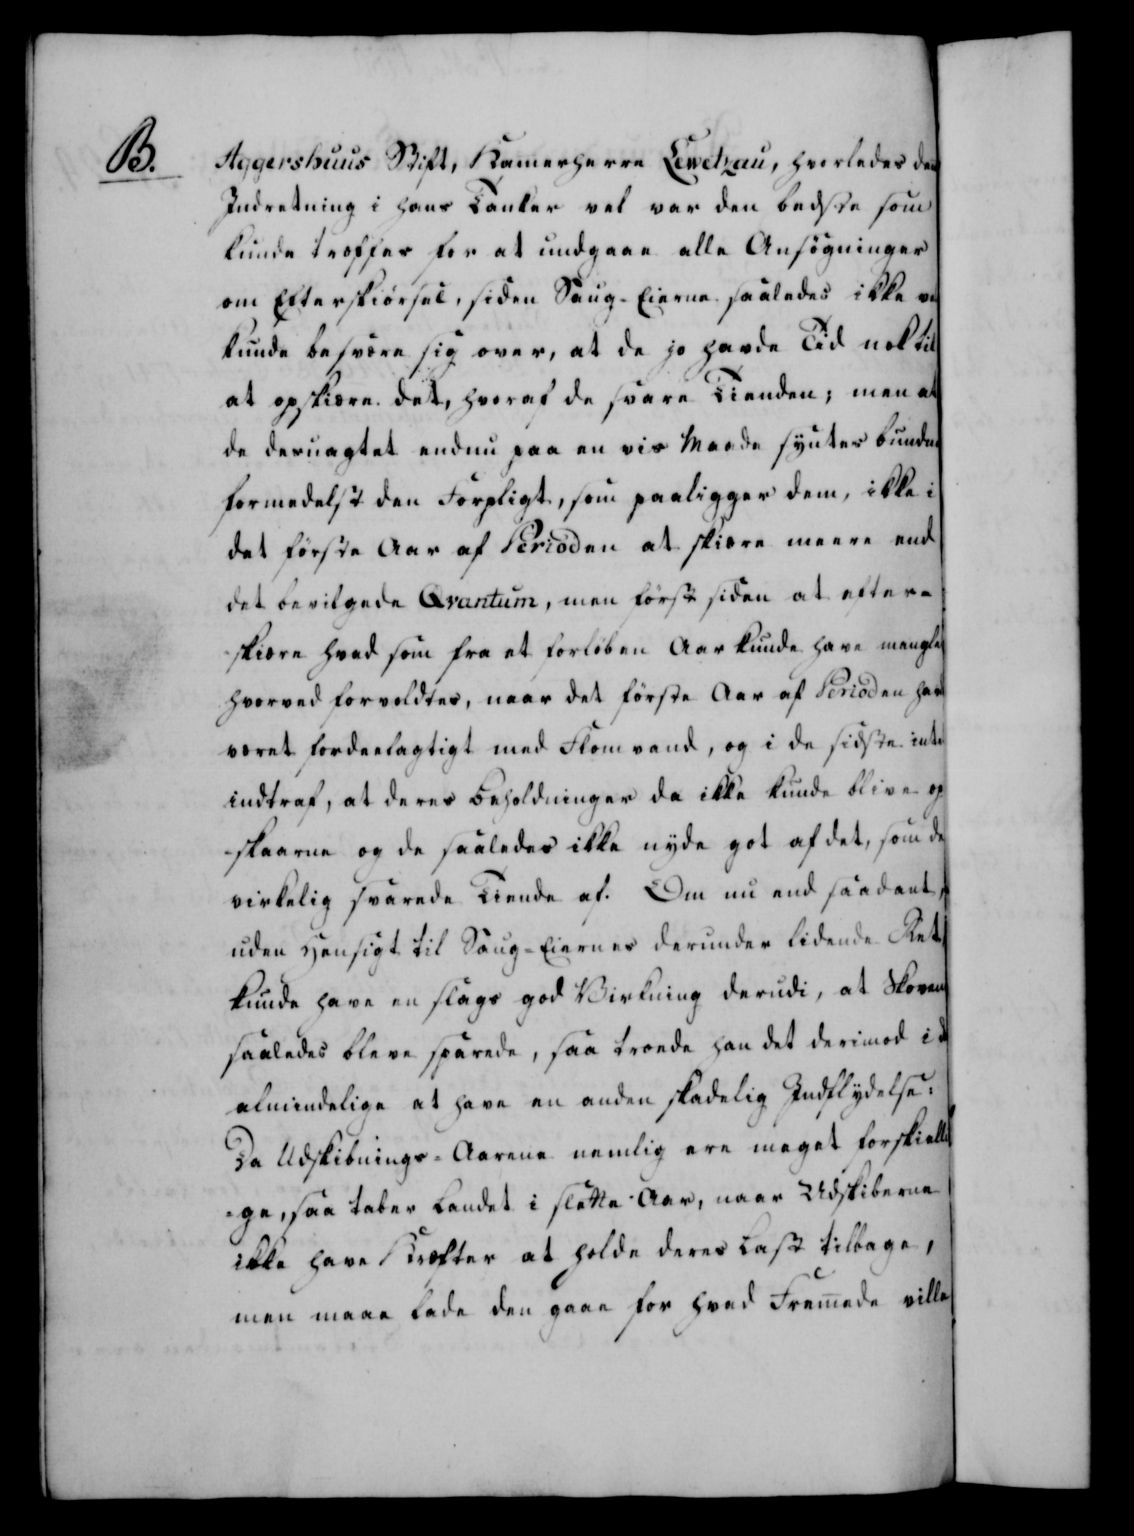 B.
Aggershuus Stift, Kamerherre Lewetzau, hvorledes den
Indretning i hans Tanker vel var den bedste som
kunde træffes for at undgaae alle Ansøgninger
om Efterskiørsel, siden Saug-Eierne saaledes ikke
kunde besvære sig over, at de jo havde Tid nok til
at opskiære det, hvoraf de svare Tienden; men at
de deruagtet endnu paa en vis Maade syntes bundne
formedelst den Forpligt, som paaligger dem, ikke i
det første Aar af Perioden at skiære meere end
det bevilgede Qvantum, men først siden at efter-
skiære hvad som fra et forløben Aar kunde have mengle
hvorved forvoldtes, naar det første Aar af Perioden hav
været fordeelagtigt med Flomvand, og i de sidste inte
indtraf, at deres Beholdninger da ikke kunde blive op
-skaarne og de saaledes ikke nyde got af det, som de
virkelig svarede Tiende af. Om nu end saadant,
uden Hensigt til Saug-Eiernes derunder lidende Ret,
kunde have en slags god Virkning derudi, at Skoven
saaledes bleve sparede, saa troede han det derimod i d
almindelige at have en anden skadelig Indflydelse:
Da Udskibnings-Aarene nemlig ere meget forskielli
-ge, saa taber Landet i slette Aar, naar Udskiberne
ikke have Kræfter at holde deres Last tilbage,
men maae lade den gaae for hvad Fremede ville